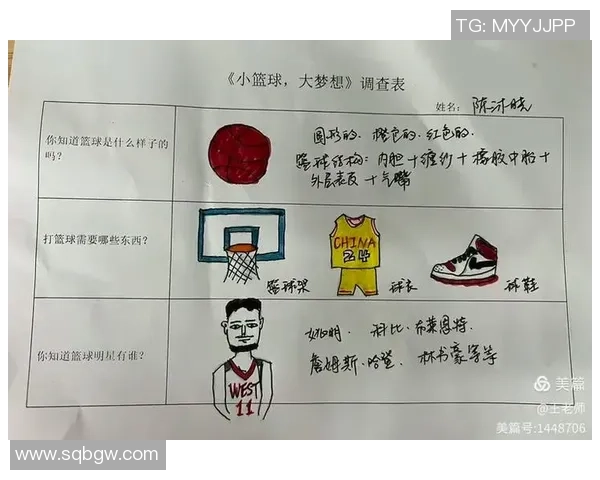 TG: MYYJJPP
《小篮球，大梦想》调查表
姓名：陈沐晓
你知道篮球是什么样子的吗？
圆形的、橙色的、红色的、
篮球结构：内胆+缠纱+橡胶中胎+
外层表皮+气嘴
打篮球需要哪些东西？
CHINA
24
篮球架
球衣
球鞋
你知道篮球明星有谁？
WEST
11
姚明、科比·布莱恩特、
詹姆斯·哈登、林书豪等等
美篇
@王老师
美篇号:1448706
www.sqbgw.com